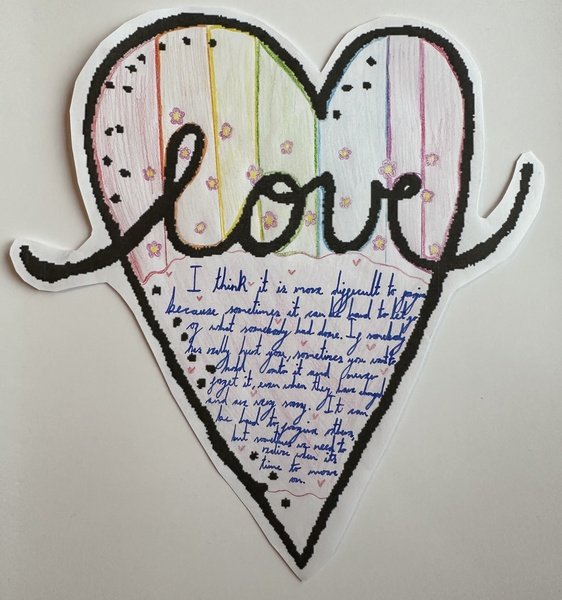 love
I think it is more difficult to forgive
because sometimes it can be hard to let go
of what somebody had done. If somebody
has really hurt you, sometimes you want to
hold onto it and never
forget it, even when they have changed
and are very sorry. It can
be hard to forgive others,
but sometimes we need to
realize when it's
time to move
on.